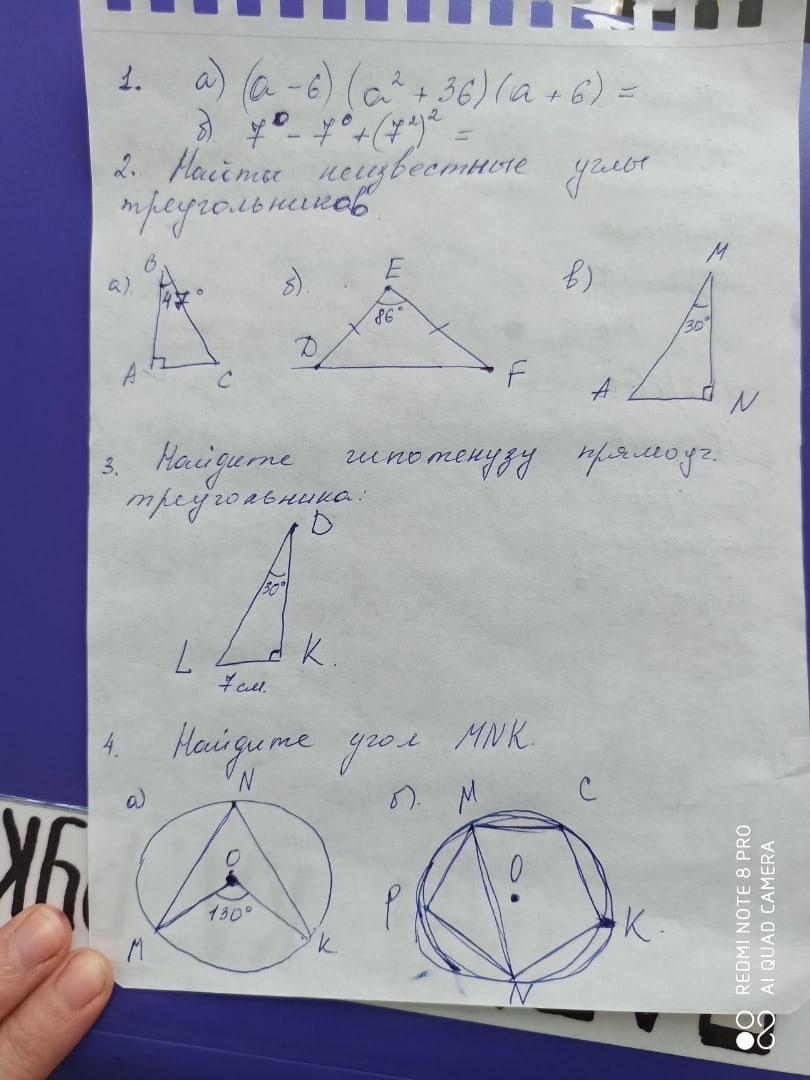 1. а) (a - 6) (a² + 36) (a + 6) =
б) 7⁰ - 7⁰ + (7²)² =
2. Найти неизвестные углы
треугольников
а). б). в)
B E M
47° 86° 30°
A C D F A N
3. Найдите гипотенузу прямоуг.
треугольника:
D
30°
L K.
7 см.
4. Найдите угол MNK.
а) N б). M C
O O
130° P K.
M K N
REDMI NOTE 8 PRO
AI QUAD CAMERA